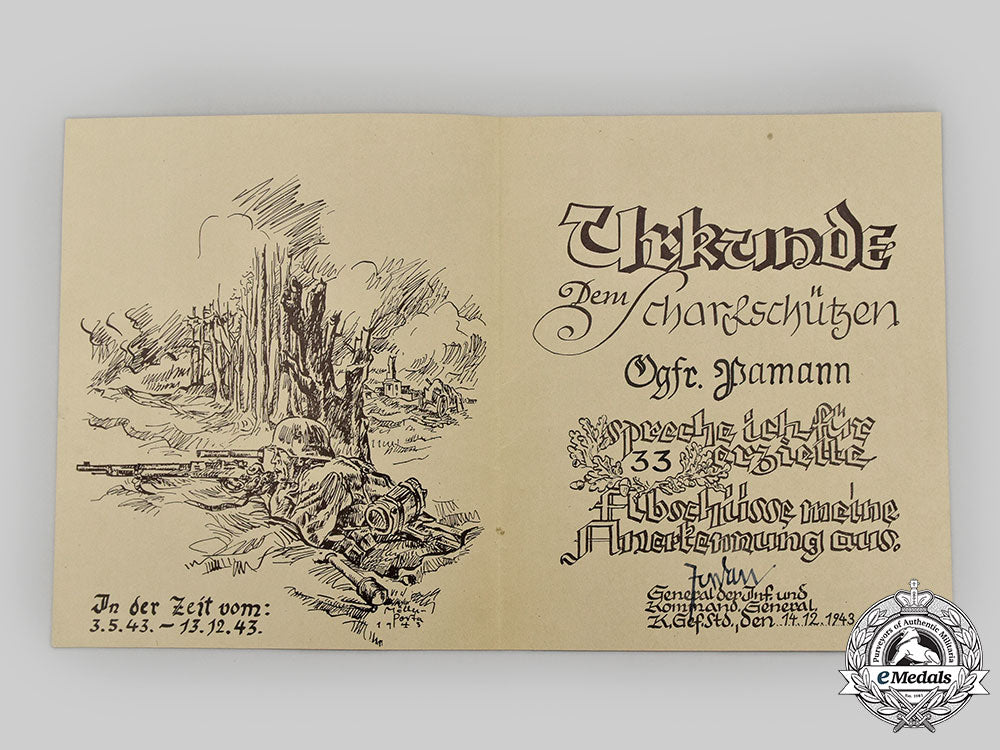 In der Zeit vom:
3.5.43. – 13.12.43.
Urkunde
Dem Scharfschützen
Ogfr. Pamann
spreche ich für
33 erzielte
Abschüsse meine
Anerkennung aus.
General der Inf. und
Kommand. General
K.Gef.Std., den 14.12.1943
Purveyors of Authentic Militaria
eMedals